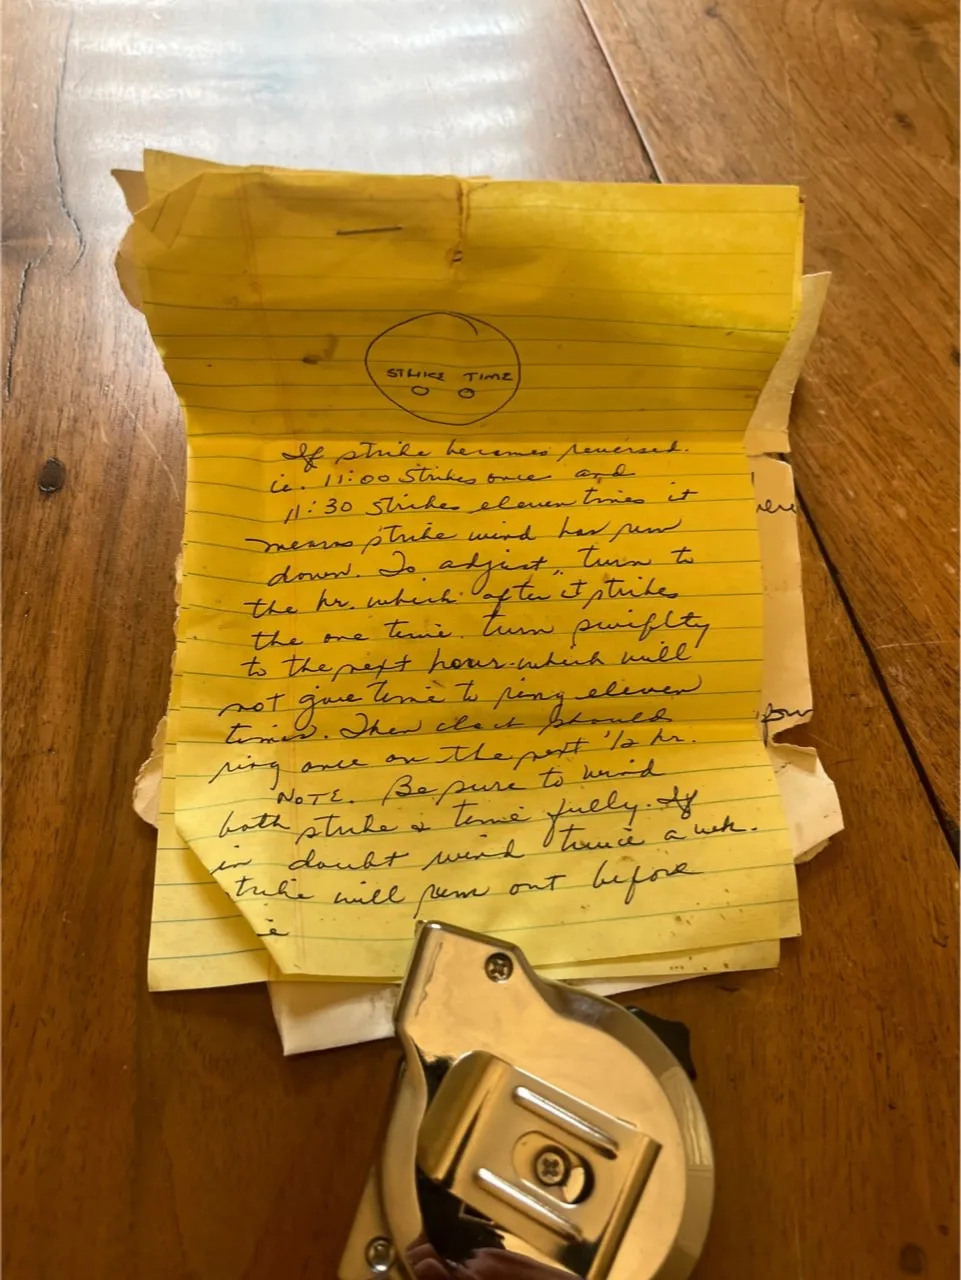 STRIKE TIME
If strike becomes reversed.
ie. 11:00 Strikes once and
11:30 Strikes eleven times it
means strike wind has run
down. To adjust, turn to
the hr. which after it strikes
the one time. turn swiftly
to the next hour which will
not give time to ring eleven
times. Then clock should
ring once on the next 1/2 hr.
NOTE. Be sure to wind
both strike & time fully. If
in doubt wind twice a wk.
trike will run out before